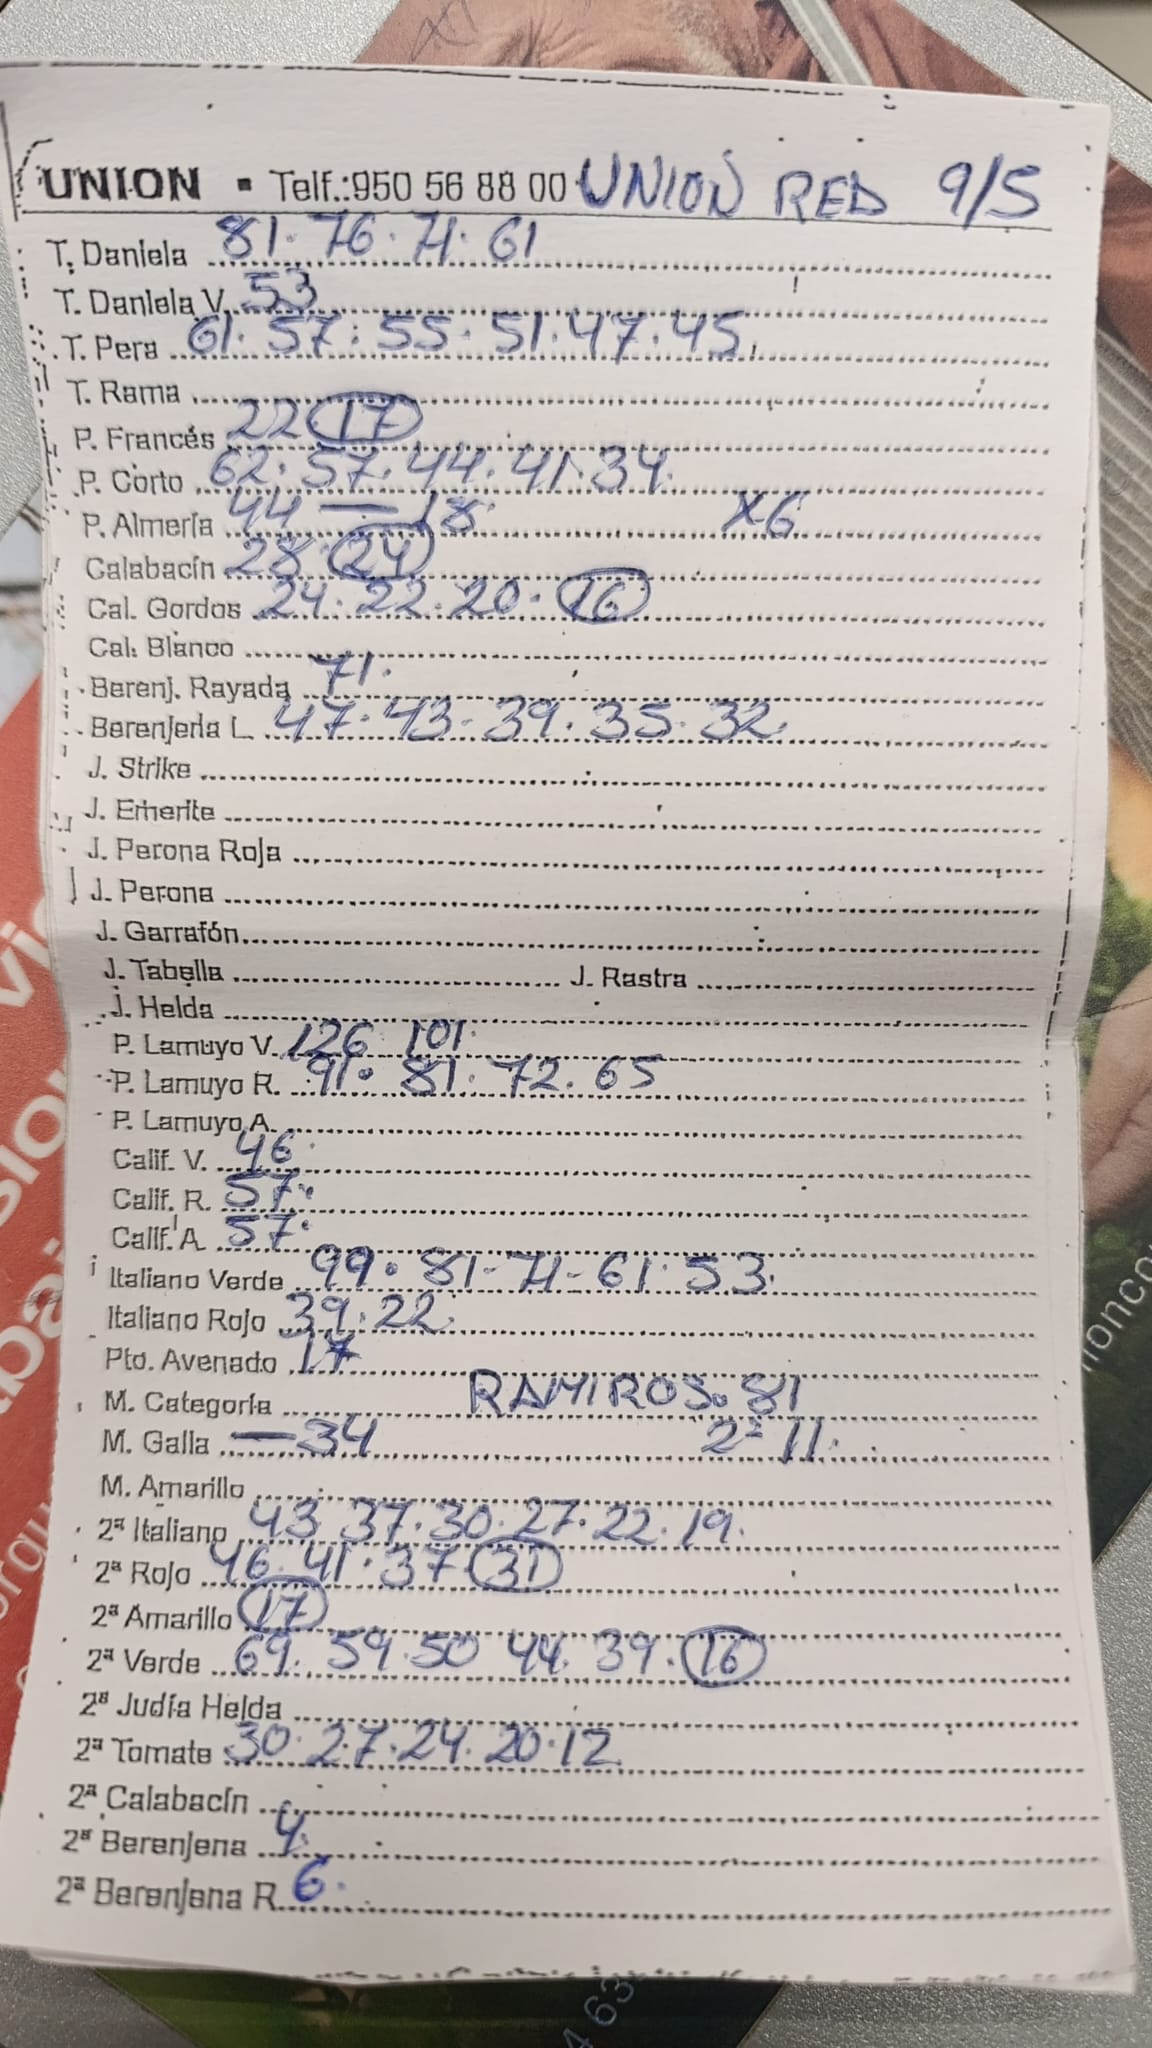 UNION • Telf.:950 56 88 00 UNION RED 9/5
T. Daniela 81. 76. 71. 61
T. Daniela V. 53
T. Pera 61. 57. 55. 51. 47. 45
T. Rama
P. Francés 22 17
P. Corto 62. 57. 44. 41. 34.
P. Almería 44 — 18 x6
Calabacín 28. 24
Cal. Gordos 24. 22. 20. 16
Cal. Blanco
Berenj. Rayada 71.
Berenjena L. 47. 43. 39. 35. 32.
J. Strike
J. Emerite
J. Perona Roja
J. Perona
J. Garrafón
J. Tabella J. Rastra
J. Helda
P. Lamuyo V. 126. 101.
P. Lamuyo R. 91. 81. 72. 65
P. Lamuyo A.
Calif. V. 46.
Calif. R. 57.
Calif. A 57.
Italiano Verde 99. 81-71-61. 53.
Italiano Rojo 39. 22.
Pto. Avenado 17
M. Categoría RAMIROS. 81
M. Galla — 34 2ª 11.
M. Amarillo
2ª Italiano 43 37. 30. 27. 22. 19.
2ª Rojo 46. 41. 37. 31
2ª Amarillo 17
2ª Verde 69. 59. 50 44. 39. 16
2ª Judía Helda
2ª Tomate 30. 27. 24. 20. 12
2ª Calabacín
2ª Berenjena 4.
2ª Berenjena R. 6.
4 63